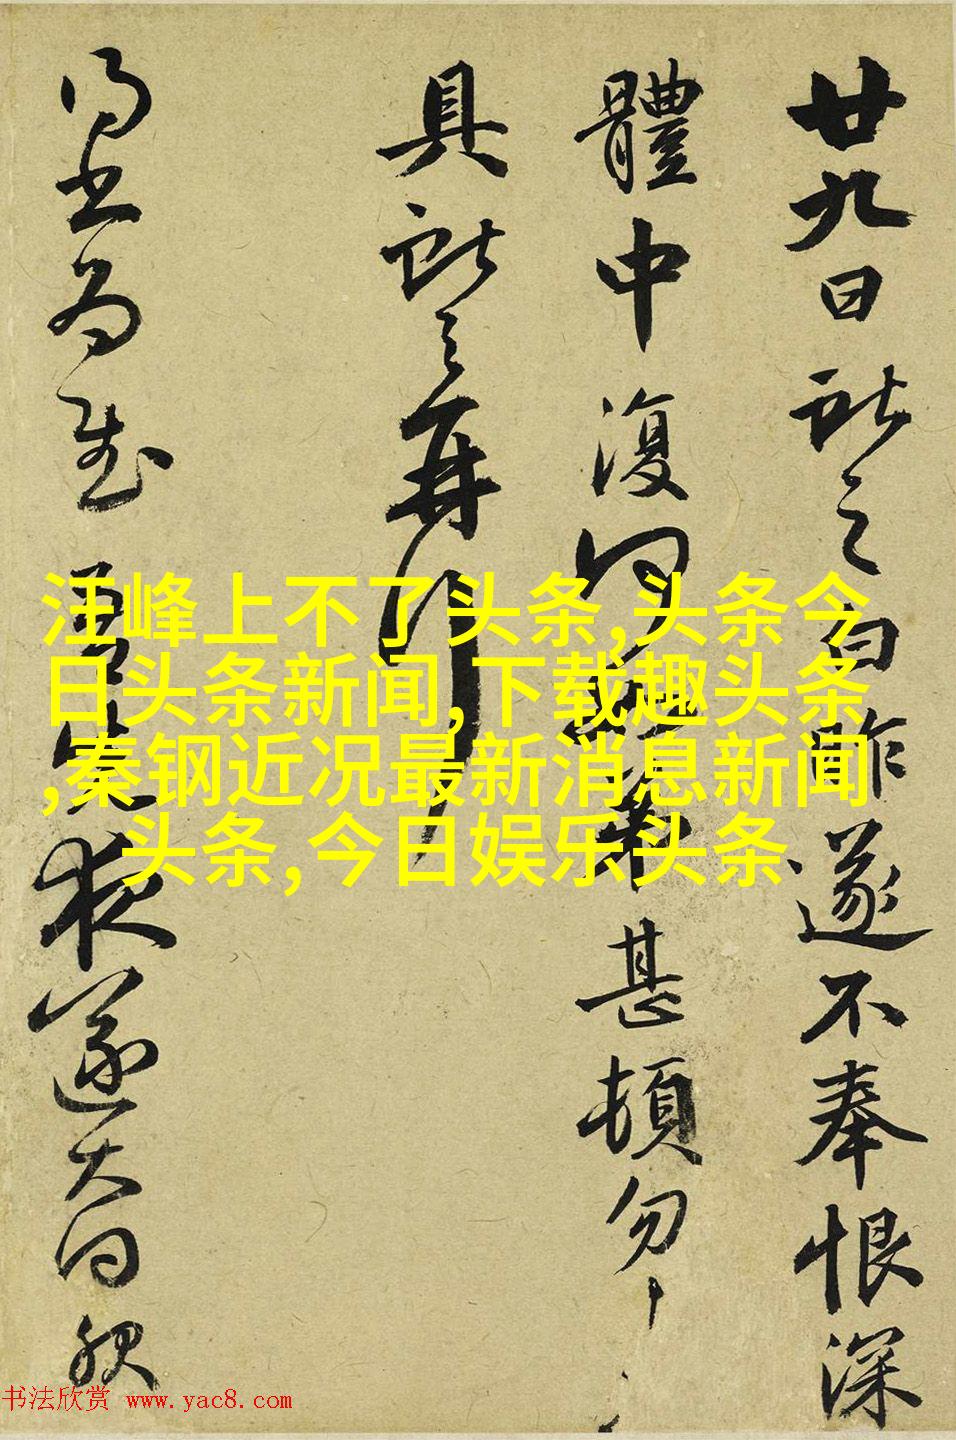 廿九日獻之白昨遂不奉恨深
體中復何如弟甚頓勿勿
具獻之再拜
得書為慰夜遂大
汪峰上不了头条,头条今
日头条新闻,下载趣头条
,秦钢近况最新消息新闻
头条, 今日娱乐头条
书法欣赏 www.yac8.com